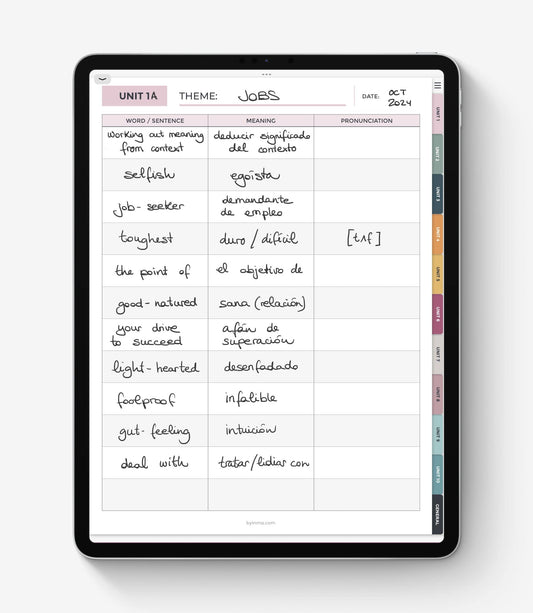 UNIT 1A
THEME: JOBS
DATE: OCT
2024
WORD / SENTENCE MEANING PRONUNCIATION
working out meaning
from context
deducir significado
del contexto
selfish egoísta
job-seeker
demandante
de empleo
toughest duro/difícil [tʌf]
the point of el objetivo de
good-natured sana (relación)
your drive
to succeed
afán de
superación
light-hearted desenfadado
foolproof infalible
gut-feeling intuición
deal with tratar/lidiar con
UNIT 1
UNIT 2
UNIT 3
UNIT 4
UNIT 5
UNIT 6
UNIT 7
UNIT 8
UNIT 9
UNIT 10
GENERAL
byinma.com